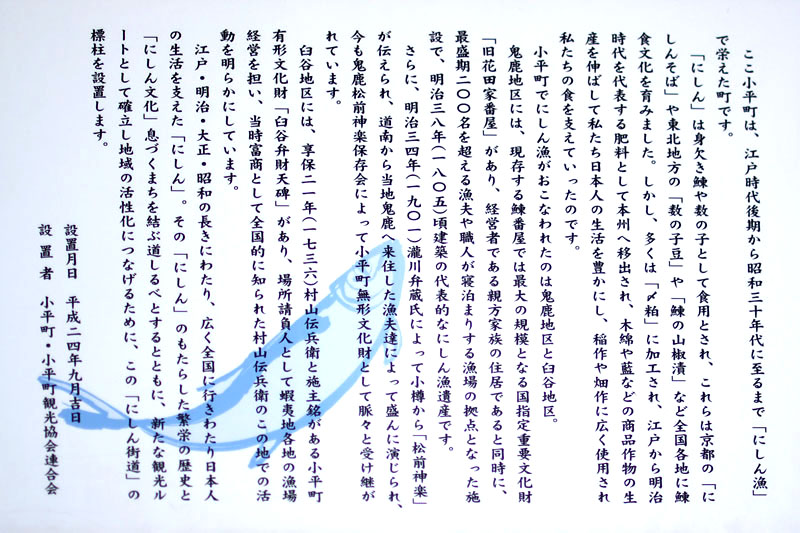 ここ小平町は、江戸時代後期から昭和三十年代に至るまで「にしん漁」
で栄えた町です。
「にしん」は身欠き鰊や数の子として食用とされ、これらは京都の「に
しんそば」や東北地方の「数の子豆」や「鰊の山椒漬」など全国各地に鰊
食文化を育みました。しかし、多くは「〆粕」に加工され、江戸から明治
時代を代表する肥料として本州へ移出され、木綿や藍などの商品作物の生
産を伸ばして私たち日本人の生活を豊かにし、稲作や畑作に広く使用され
私たちの食を支えていったのです。
小平町でにしん漁がおこなわれたのは鬼鹿地区と臼谷地区。
鬼鹿地区には、現存する鰊番屋では最大の規模となる国指定重要文化財
「旧花田家番屋」があり、経営者である親方家族の住居であると同時に、
最盛期二〇〇名を超える漁夫や職人が寝泊まりする漁場の拠点となった施
設で、明治三八年(一八〇五)頃建築の代表的なにしん漁遺産です。
さらに、明治三四年(一九〇一)瀧川弁蔵氏によって小樽から「松前神楽」
が伝えられ、道南から当地鬼鹿へ来住した漁夫達によって盛んに演じられ、
今も鬼鹿松前神楽保存会によって小平町無形文化財として脈々と受け継が
れています。
臼谷地区には、享保二一年(一七三六)村山伝兵衛と施主銘がある小平町
有形文化財「臼谷弁財天碑」があり、場所請負人として蝦夷地各地の漁場
経営を担い、当時富商として全国的に知られた村山伝兵衛のこの地での活
動を明らかにしています。
江戸・明治・大正・昭和の長きにわたり、広く全国に行きわたり日本人
の生活を支えた「にしん」。その「にしん」のもたらした繁栄の歴史と
「にしん文化」息づくまちを結ぶ道しるべとするとともに、新たな観光ル
ートとして確立し地域の活性化につなげるために、この「にしん街道」の
標柱を設置します。
設置月日 平成二四年九月吉日
設置者 小平町・小平町観光協会連合会